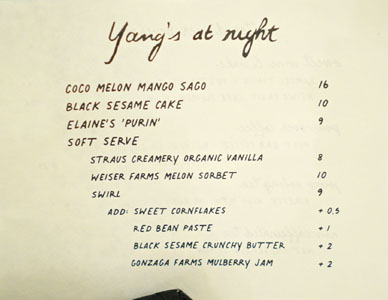 Yang's at night
COCO MELON MANGO SAGO 16
BLACK SESAME CAKE 10
ELAINE'S 'PURIN' 9
SOFT SERVE
STRAUS CREAMERY ORGANIC VANILLA 8
WEISER FARMS MELON SORBET 10
SWIRL 9
ADD: SWEET CORNFLAKES + 0.5
RED BEAN PASTE + 1
BLACK SESAME CRUNCHY BUTTER + 2
GONZAGA FARMS MULBERRY JAM + 2